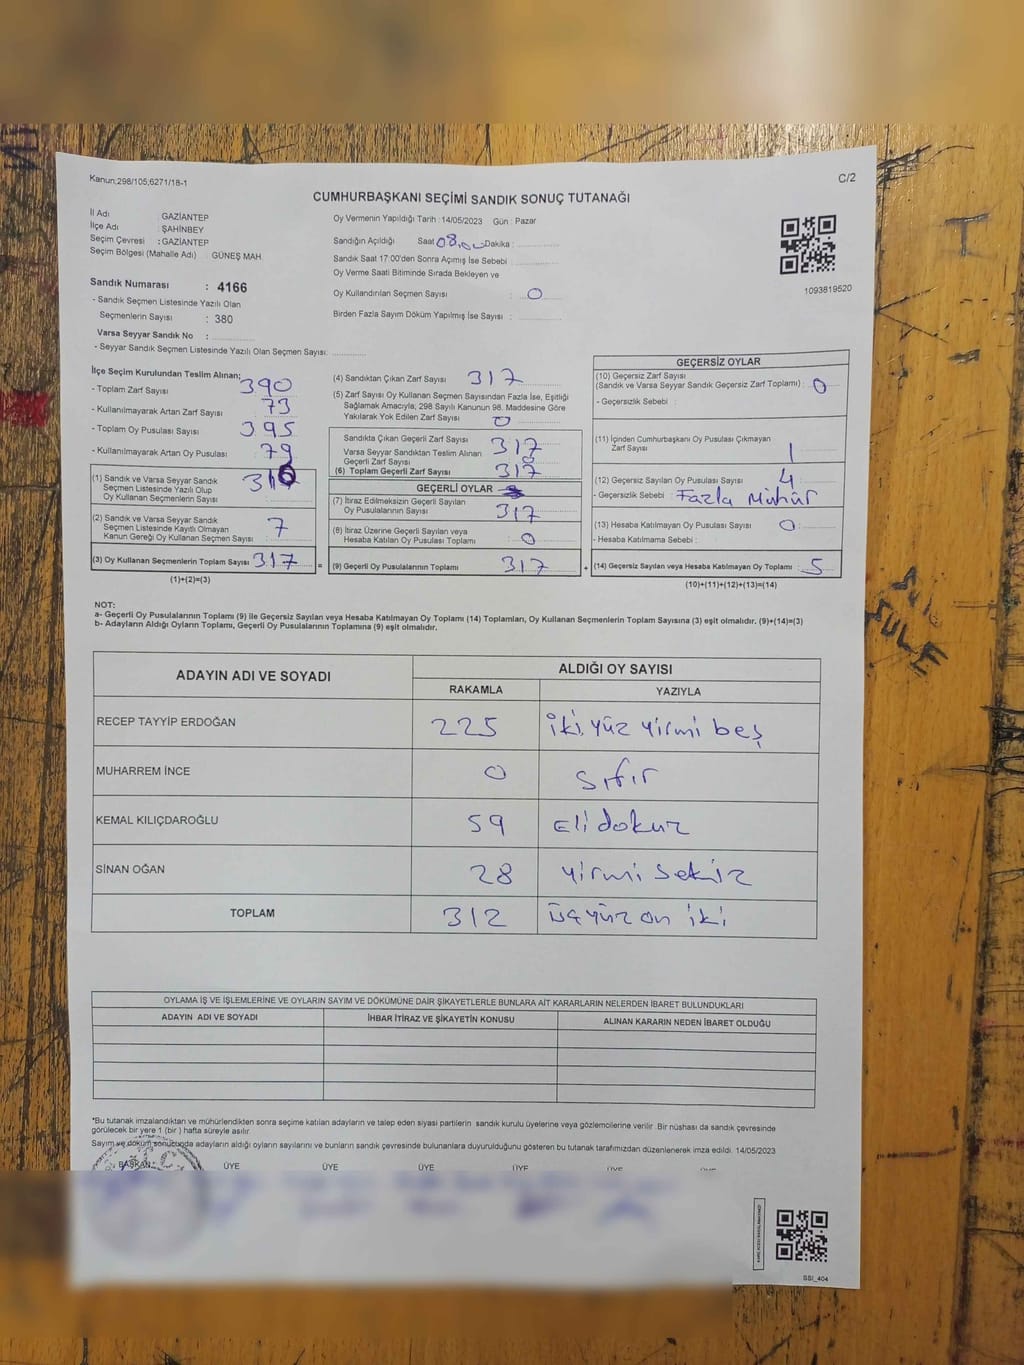 Kanun;298/105,6271/18-1
C/2
CUMHURBAŞKANI SEÇİMİ SANDIK SONUÇ TUTANAĞI
İl Adı : GAZİANTEP
İlçe Adı : ŞAHİNBEY
Seçim Çevresi : GAZİANTEP
Seçim Bölgesi (Mahalle Adı) : GÜNEŞ MAH.
Oy Vermenin Yapıldığı Tarih : 14/05/2023 Gün : Pazar
Sandığın Açıldığı Saat 08.00 Dakika :
Sandık Saat 17:00'den Sonra Açımış İse Sebebi :
Oy Verme Saati Bitiminde Sırada Bekleyen ve
Oy Kullandırılan Seçmen Sayısı : 0
Birden Fazla Sayım Döküm Yapılmış İse Sayısı :
1093819520
Sandık Numarası : 4166
- Sandık Seçmen Listesinde Yazılı Olan
Seçmenlerin Sayısı : 380
Varsa Seyyar Sandık No :
- Seyyar Sandık Seçmen Listesinde Yazılı Olan Seçmen Sayısı:
İlçe Seçim Kurulundan Teslim Alınan:
- Toplam Zarf Sayısı 390
- Kullanılmayarak Artan Zarf Sayısı : 73
- Toplam Oy Pusulası Sayısı : 395
- Kullanılmayarak Artan Oy Pusulası : 79
(1) Sandık ve Varsa Seyyar Sandık
Seçmen Listesinde Yazılı Olup
Oy Kullanan Seçmenlerin Sayısı : 310
(2) Sandık ve Varsa Seyyar Sandık
Seçmen Listesinde Kayıtlı Olmayan
Kanun Gereği Oy Kullanan Seçmen Sayısı : 7
(3) Oy Kullanan Seçmenlerin Toplam Sayısı : 317
(1)+(2)=(3)
(4) Sandıktan Çıkan Zarf Sayısı : 317
(5) Zarf Sayısı Oy Kullanan Seçmen Sayısından Fazla İse, Eşitliği
Sağlamak Amacıyla; 298 Sayılı Kanunun 98. Maddesine Göre
Yakılarak Yok Edilen Zarf Sayısı : 0
Sandıkta Çıkan Geçerli Zarf Sayısı : 317
Varsa Seyyar Sandıktan Teslim Alınan
Geçerli Zarf Sayısı :
(6) Toplam Geçerli Zarf Sayısı : 317
GEÇERLİ OYLAR
(7) İtiraz Edilmeksizin Geçerli Sayılan
Oy Pusulalarının Sayısı : 317
(8) İtiraz Üzerine Geçerli Sayılan veya
Hesaba Katılan Oy Pusulası Toplamı : 0
= (9) Geçerli Oy Pusulalarının Toplamı : 317
GEÇERSİZ OYLAR
(10) Geçersiz Zarf Sayısı
(Sandık ve Varsa Seyyar Sandık Geçersiz Zarf Toplamı) : 0
- Geçersizlik Sebebi :
(11) İçinden Cumhurbaşkanı Oy Pusulası Çıkmayan
Zarf Sayısı : 1
(12) Geçersiz Sayılan Oy Pusulası Sayısı : 4
- Geçersizlik Sebebi : Fazla Mühür
(13) Hesaba Katılmayan Oy Pusulası Sayısı : 0
- Hesaba Katılmama Sebebi :
+ (14) Geçersiz Sayılan veya Hesaba Katılmayan Oy Toplamı : 5
(10)+(11)+(12)+(13)=(14)
NOT:
a- Geçerli Oy Pusulalarının Toplamı (9) ile Geçersiz Sayılan veya Hesaba Katılmayan Oy Toplamı (14) Toplamları, Oy Kullanan Seçmenlerin Toplam Sayısına (3) eşit olmalıdır. (9)+(14)=(3)
b- Adayların Aldığı Oyların Toplamı, Geçerli Oy Pusulalarının Toplamına (9) eşit olmalıdır.
ADAYIN ADI VE SOYADI
ALDIĞI OY SAYISI
RAKAMLA YAZIYLA
RECEP TAYYİP ERDOĞAN 225 iki yüz yirmi beş
MUHARREM İNCE 0 sıfır
KEMAL KILIÇDAROĞLU 59 Eli dokuz
SİNAN OĞAN 28 yirmi sekiz
TOPLAM 312 üç yüz on iki
OYLAMA İŞ VE İŞLEMLERİNE VE OYLARIN SAYIM VE DÖKÜMÜNE DAİR ŞİKAYETLERLE BUNLARA AİT KARARLARIN NELERDEN İBARET BULUNDUKLARI
ADAYIN ADI VE SOYADI İHBAR İTİRAZ VE ŞİKAYETİN KONUSU ALINAN KARARIN NEDEN İBARET OLDUĞU
*Bu tutanak imzalandıktan ve mühürlendikten sonra seçime katılan adayların ve talep eden siyasi partilerin sandık kurulu üyelerine veya gözlemcilerine verilir. Bir nüshası da sandık çevresinde
görülecek bir yere 1 (bir ) hafta süreyle asılır.
Sayım ve döküm sonucunda adayların aldığı oyların sayılarını ve bunların sandık çevresinde bulunanlara duyurulduğunu gösteren bu tutanak tarafımızdan düzenlenerek imza edildi. 14/05/2023
BAŞKAN ÜYE ÜYE ÜYE ÜYE ÜYE
SSI_404
ŞULE